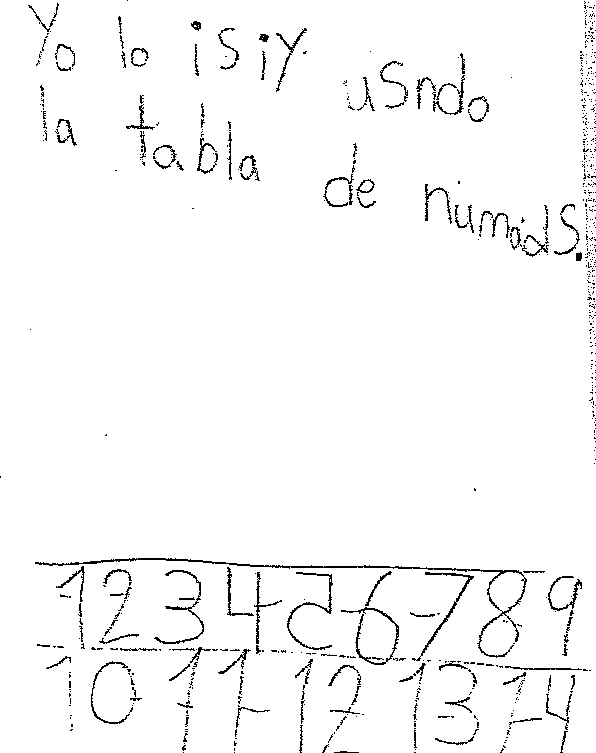 Yo lo isiy usndo
la tabla de numods.
1 2 3 4 5 6 7 8 9
10 11 12 13 14